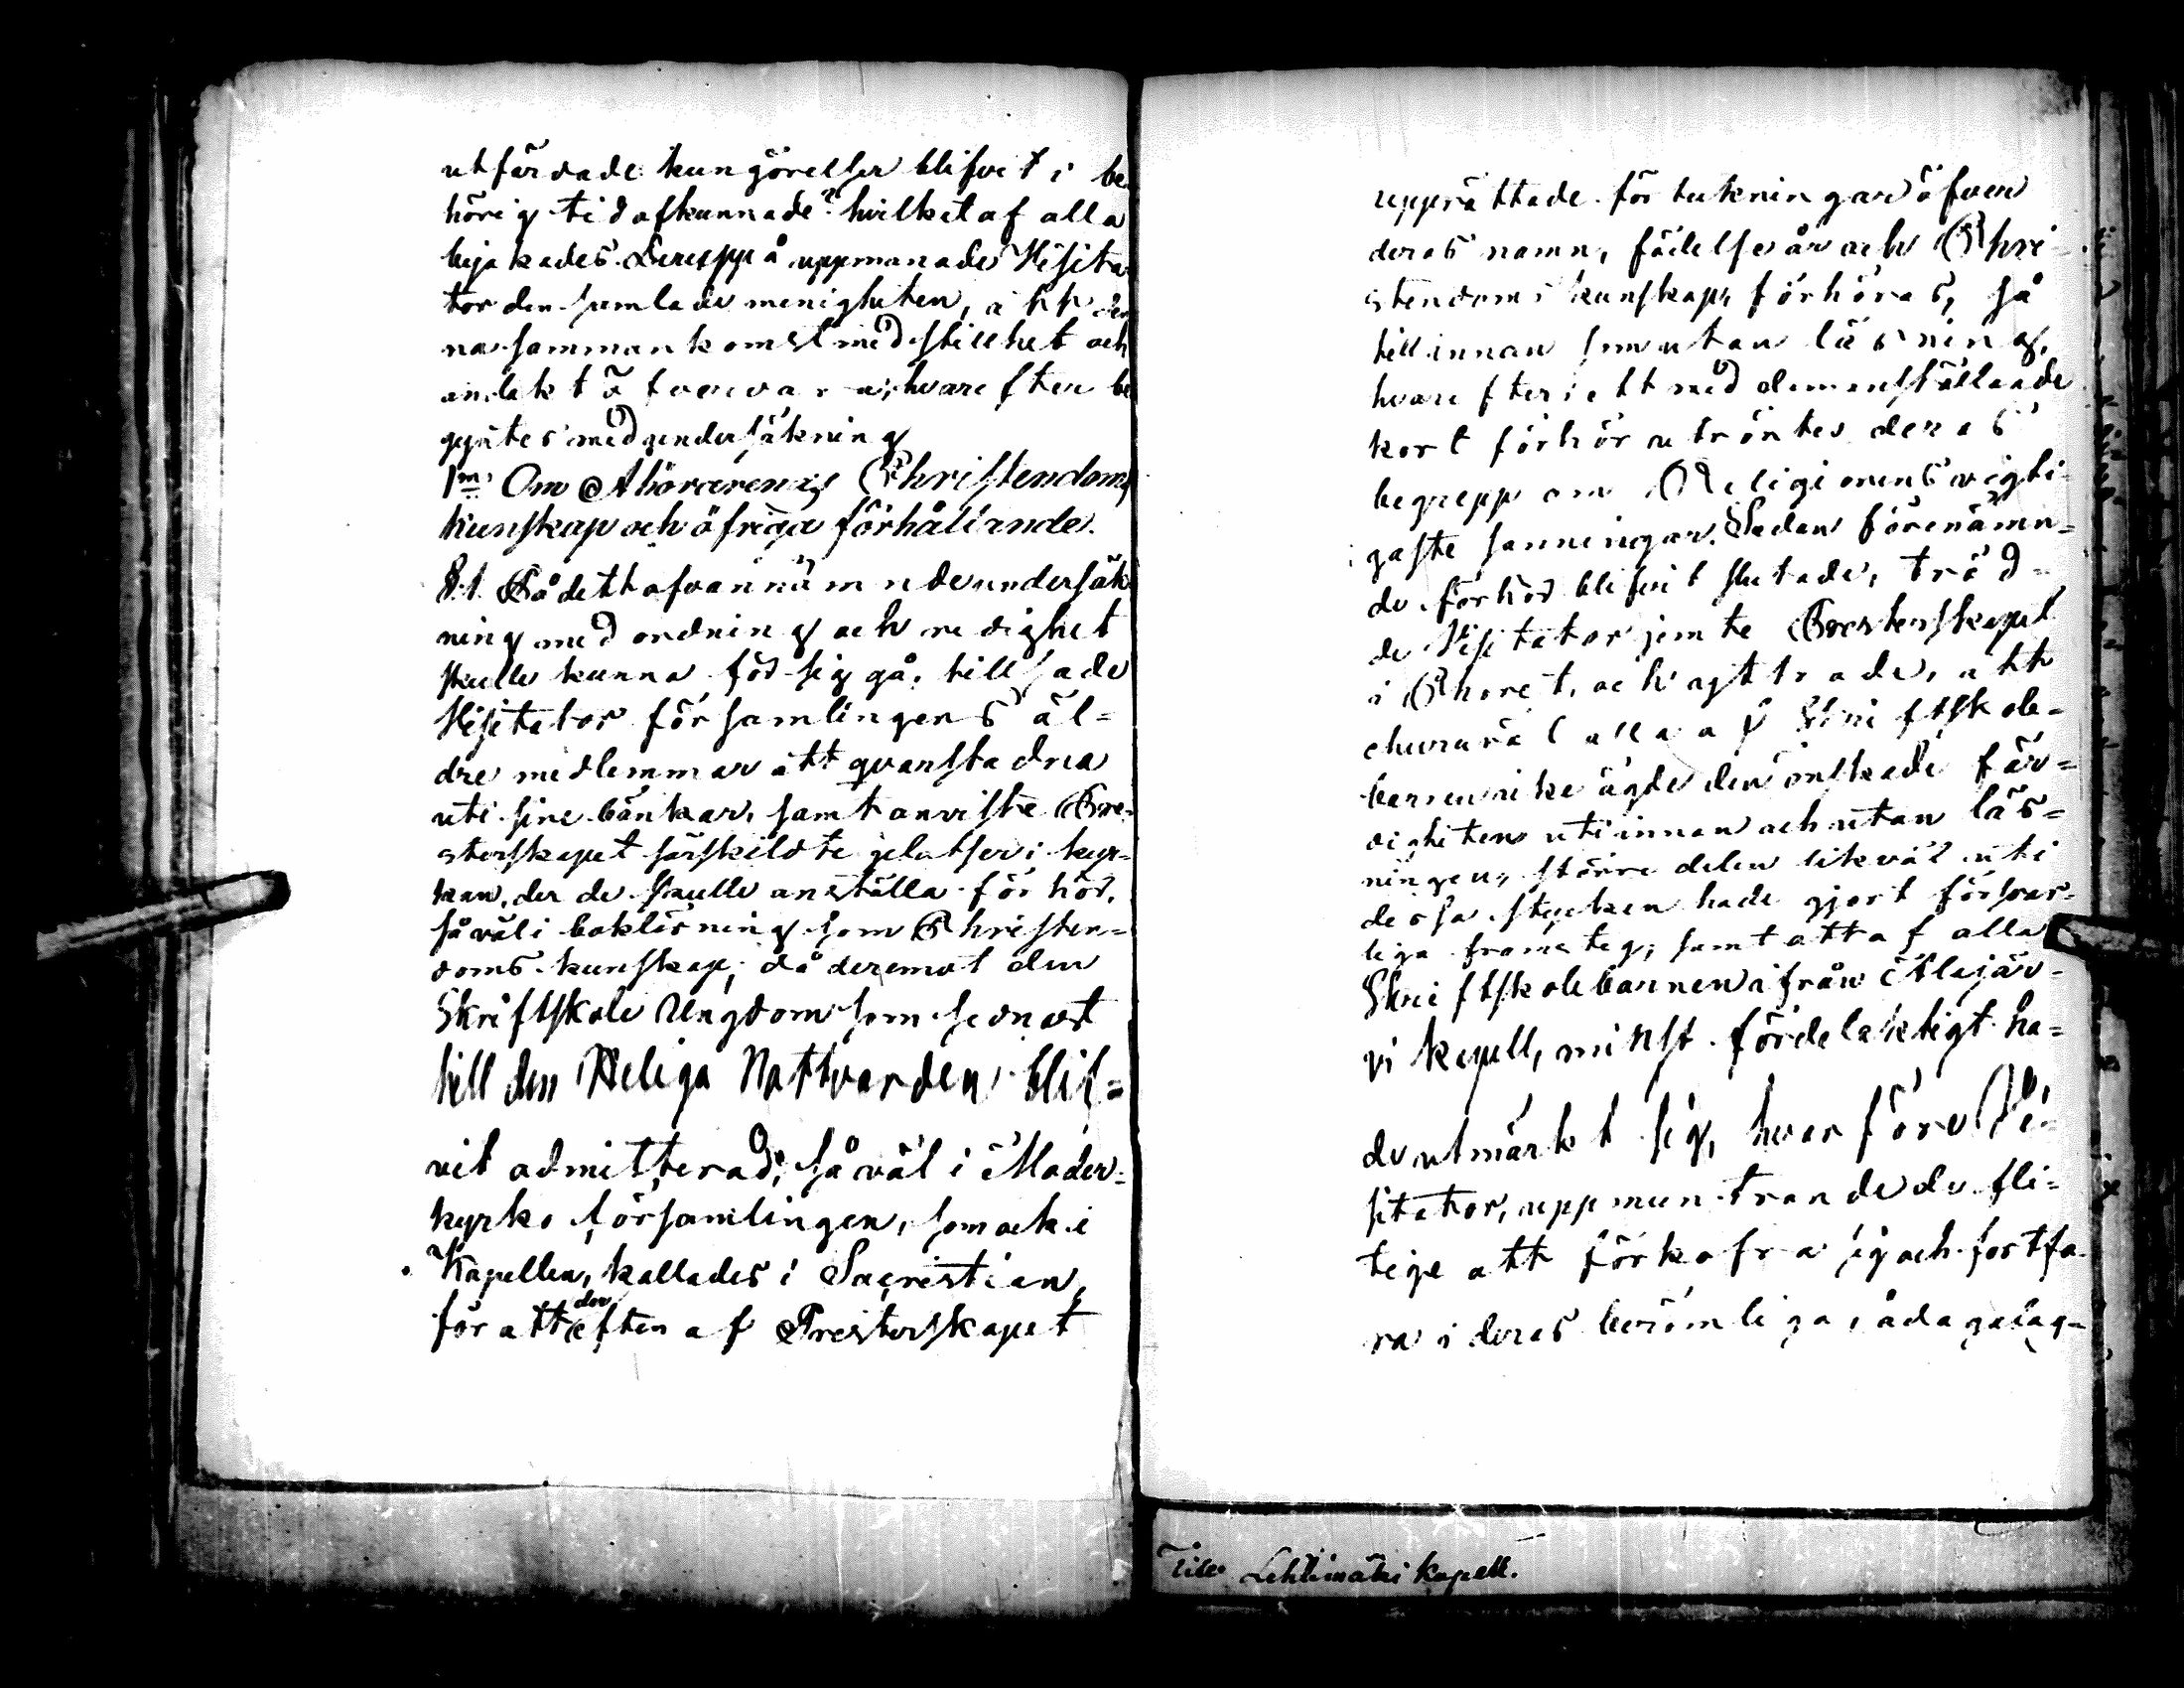 utfärdade kungörelser blifvit i be-
hörig tid afkunnade? hvilket af alla
bejakades. Deruppå uppmanade Visita-
tor den samlade menigheten, att den-
na sammankomst med stillhet och
andakt öfvervara; hvarefter be-
gyntes med undersökning
1mo Om Åhörarenas Christendoms
kunskap och öfriga förhållande.
§.1. På det att ofvannämnde undersök-
ning med ordning och redighet
skulle kunna för sig gå, tillsade
Visitator församlingens äl-
dre medlemmar att qvarstadna
uti sine bänkar, samt anviste Pre-
sterskapet särskildte platser i kyr-
kan, der de skulle anställa förhör,
såväl i bokläsning som Christen-
doms kunskap; då deremot den
Skriftskole Ungdom som sednast
till den Heliga Nattvarden blif-
vit admitterad; såväl i Moder-
kyrko församlingen, som ock i
Kapellen, kallades i Sacristian,
för att efter der af Presterskapet
upprättade förtekningar öfver
deras namn, födelse år och Chri-
stendoms kunskap, förhöras, så
till innan som utan läsning,
hvarefter i ett med dem anställade
kort förhör utröntes deras
begrepp om Religionens vigti-
gaste sanningar. Sedan förenämn-
de förhör blifvit slutade, träd-
de Visitator jemte Presterskapet
i Choret, och yttrade, att
ehuruväl alla af Skriftskole-
barnen icke ägde den önskade fär-
digheten uti innan och utan läs-
ningen, större delen likväl uti
dessa stycken hade gjort försvar-
liga framsteg; samt att af alla
Skriftskolebarnen ifrån Alajär-
vi kapell, minst fördelaktigt ha-
de utmärkt sig, hvarföre Vi-
sitator, uppmuntrande de fli-
tige att förkofra sig och fortfa-
ra i deras berömliga, ådagalag-
Till Lehtimäki kapell.